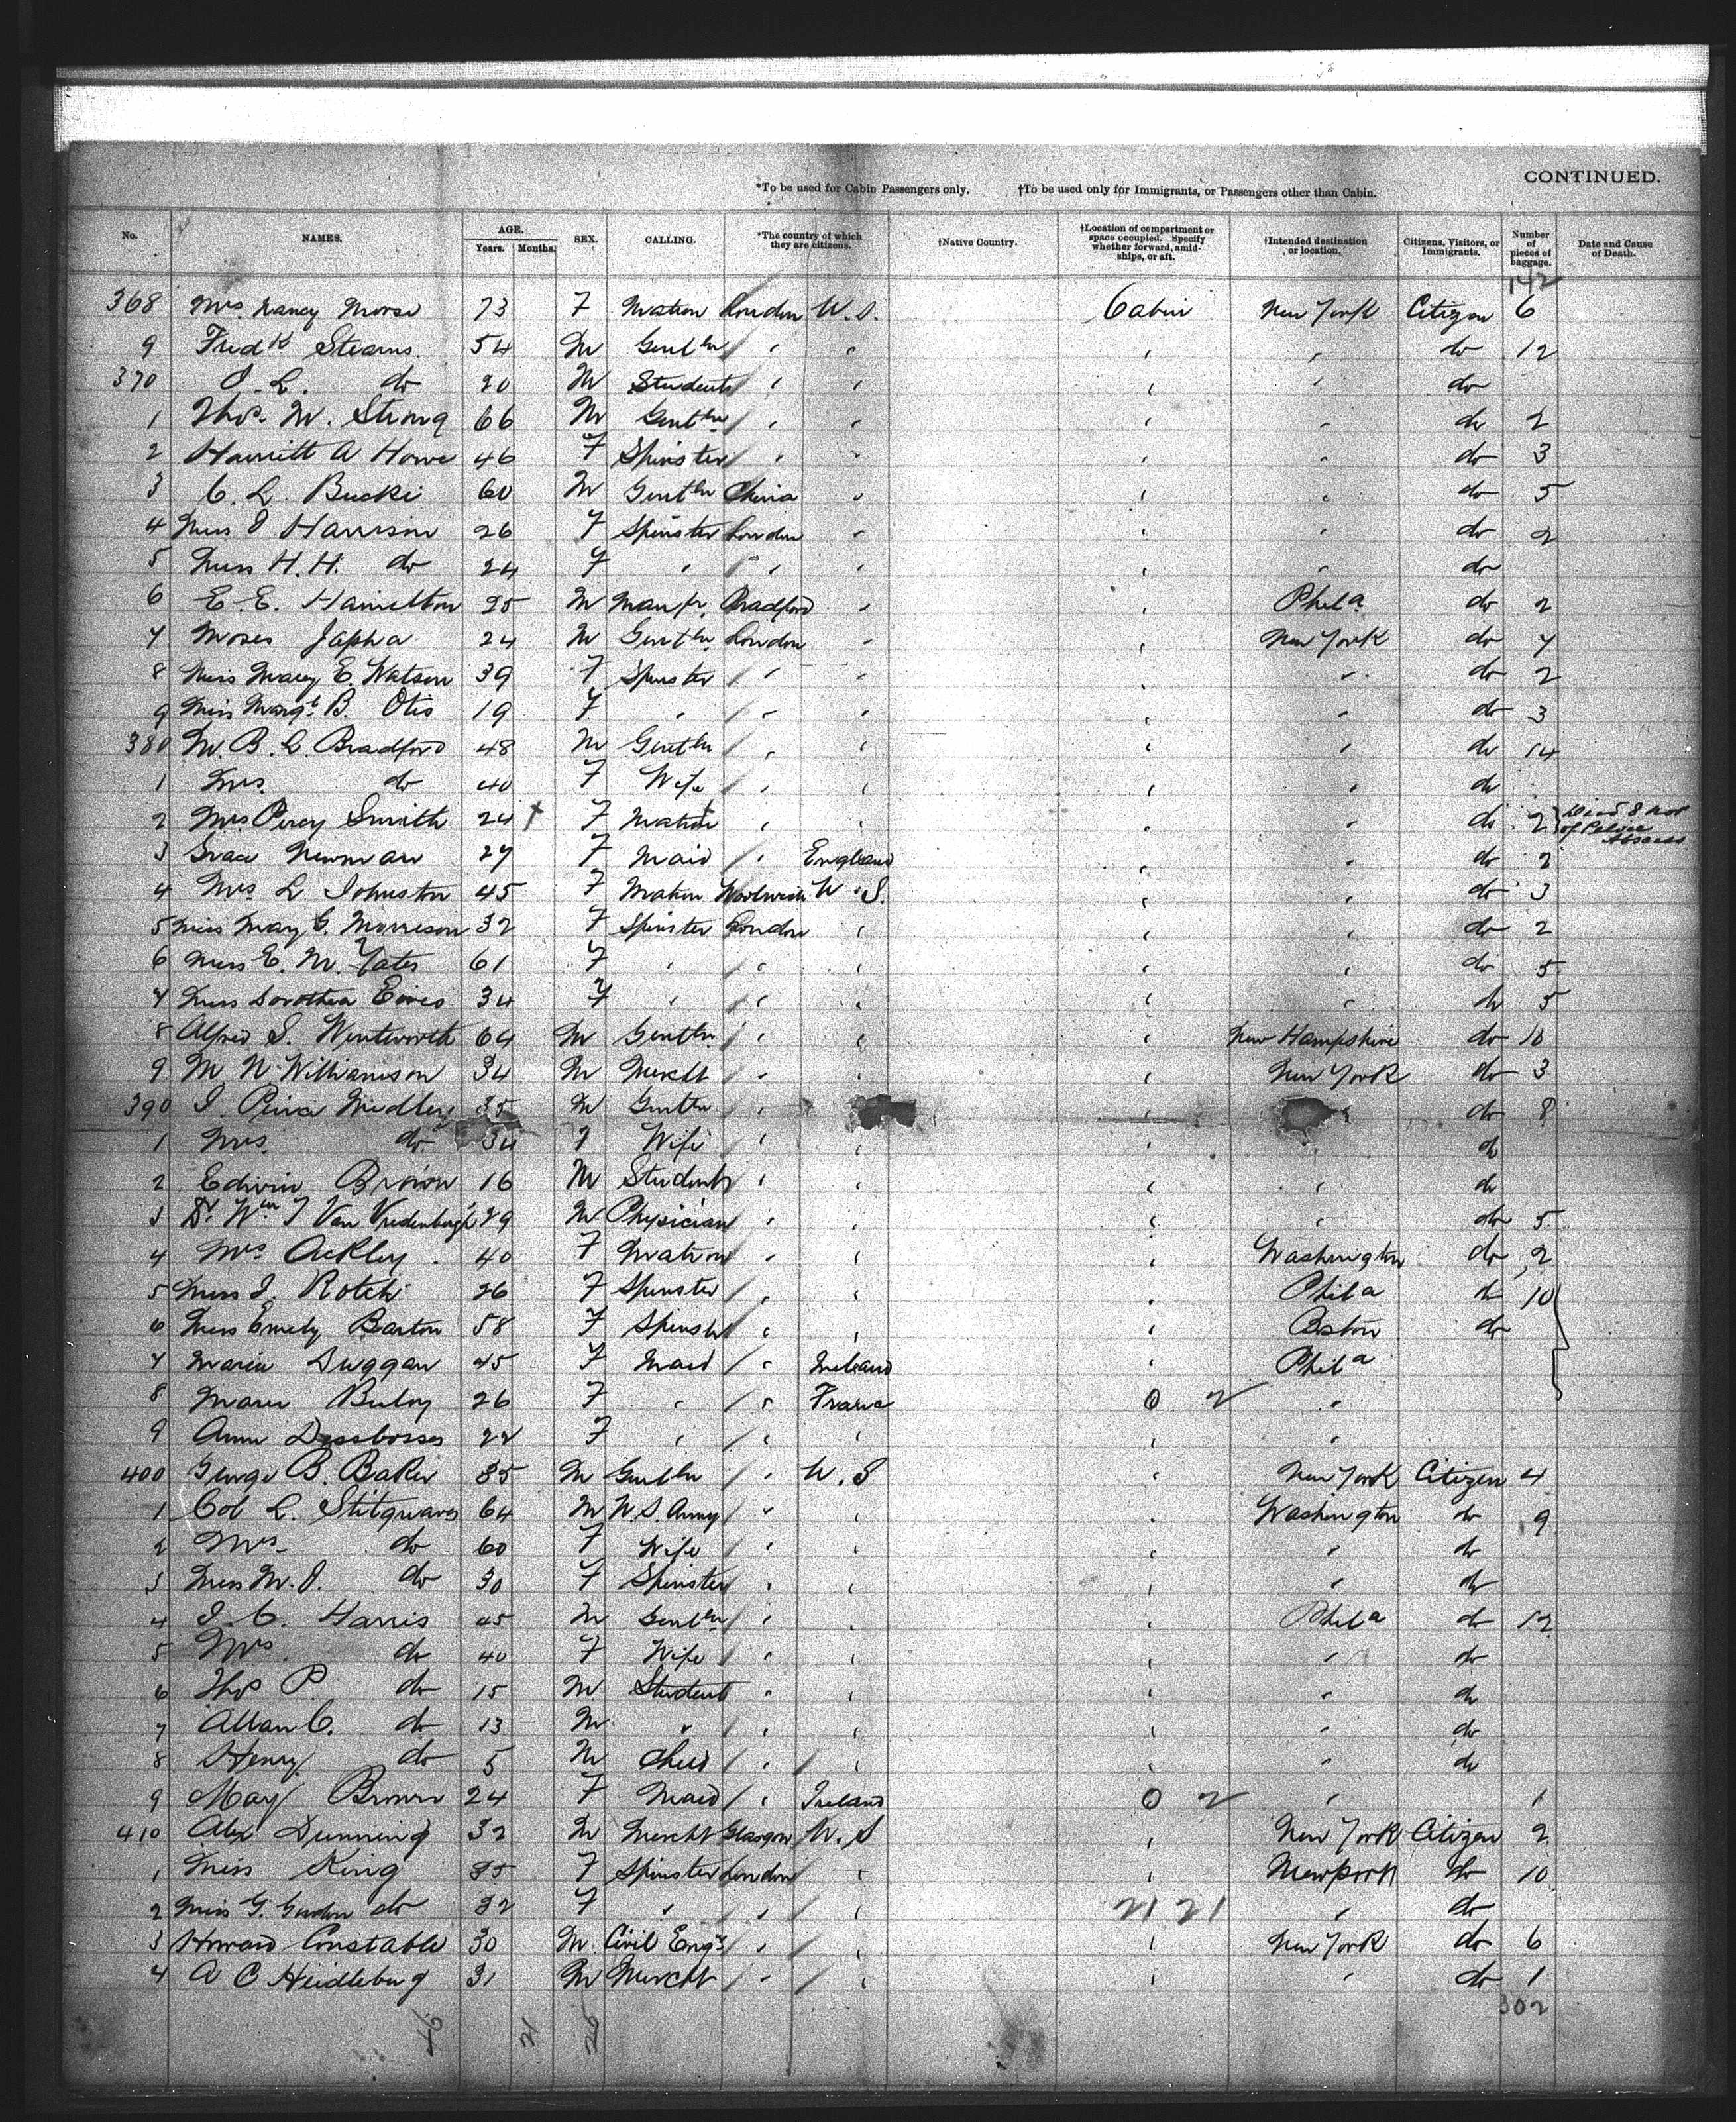 CONTINUED.
*To be used for Cabin Passengers only. †To be used only for Immigrants, or Passengers other than Cabin.
No. NAMES. AGE. Years. Months. SEX. CALLING. *The country of which they are citizens. †Native Country. †Location of compartment or space occupied. Specify whether forward, amidships, or aft. †Intended destination or location. Citizens, Visitors, or Immigrants. Number of pieces of baggage. Date and Cause of Death.
142
368 Mrs. Nancy Morse 73 F Matron London U.S. Cabin New York Citizen 6
9 Fredk Stearns 54 M Gentln " " " " do 12
370 do 20 M Student " " " " do
1 Thos. M. Strong 66 M Gentln " " " " do 2
2 Harriett A Howe 46 F Spinster " " " " do 3
3 C. L. Bucki 60 M Gentln China " " " do 5
4 Miss J Harrison 26 F Spinster London " " " do 2
5 Miss H. H. do 24 F " " " " " do
6 E. E. Hamilton 25 M Manfr. Bradford " " Phila do 2
7 Moses Japha 24 M Gentln London " " New York do 7
8 Miss Mary E. Watson 39 F Spinster " " " " do 2
9 Miss Margt B. Otis 19 F " " " " " do 3
380 M. B. L. Bradford 48 M Gentln " " " " do 14
1 Mrs. do 40 F Wife " " " " do
2 Mrs Percy Smith 24 F Matron " " " " do 2 Died 8 Nov of Pelvic Abscess
3 Grace Newman 27 F Maid " England " " do 2
4 Mrs L Johnston 45 F Matron Woolwich U.S. " " do 3
5 Miss May C. Morrison 32 F Spinster London " " " do 2
6 Miss E. M. Yates 61 F " " " " " do 5
7 Miss Dorothea 34 F " " " " " do 5
8 Alfred S. Wentworth 64 M Gentln " " " New Hampshire do 10
9 M N Williamson 34 M Mercht " " " New York do 3
390 J. 35 M Gentln " " " do 8
1 Mrs. do 34 F Wife " " " do
2 Edwin Brown 16 M Student " " " do
3 Dr. Wm T Van Vredenburgh 29 M Physician " " " " do 5
4 Mrs Ackley 40 F Matron " " " Washington do 2
5 Miss J. Rotch 26 F Spinster " " " Phila do 10
6 Miss Emily Barton 58 F Spinster " " " Boston do
7 Maria Duggan 45 F Maid " Ireland " Phila
8 Marie 26 F " " France 0 2 "
9 Anna 22 F " " " " "
400 George B. Baker 35 M Gentln " U.S " New York Citizen 4
1 Col L. 64 M U.S. Army " " " Washington do 9
2 Mrs. do 60 F Wife " " " " do
3 Miss M. J. do 30 F Spinster " " " " do
4 J. C. Harris 45 M Gentln " " " Phila do 12
5 Mrs. do 40 F Wife " " " " do
6 Thos P. do 15 M Student " " " " do
7 Allan C. do 13 M " " " " " do
8 Henry do 5 M Child " " " " do
9 May Brown 24 F Maid " Ireland 0 2 " 1
410 Alex Dunning 32 M Mercht Glasgow U.S " New York Citizen 2
1 Miss King 35 F Spinster London " " Newport do 10
2 Miss G. Gordon do 32 F " " " 21 21 " do
3 Howard Constable 30 M Civil Engr " " " New York do 6
4 A C Heidleburg 31 M Mercht " " " " do 1
302
46 21 26